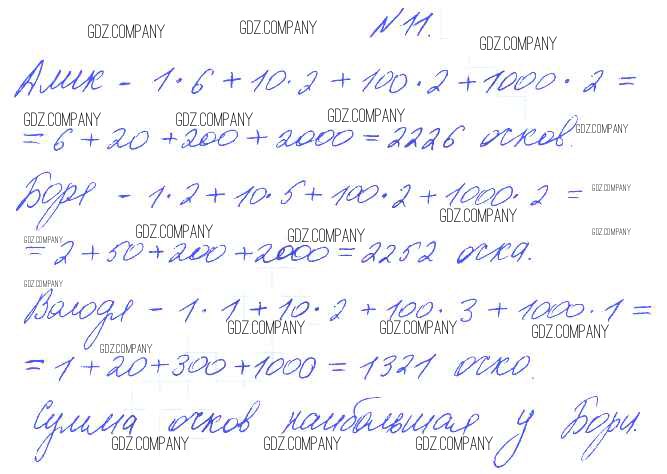 GDZ.COMPANY GDZ.COMPANY N 11.
GDZ.COMPANY
Алик - 1·6 + 10·2 + 100·2 + 1000·2 =
GDZ.COMPANY GDZ.COMPANY GDZ.COMPANY GDZ.COMPANY
= 6 + 20 + 200 + 2000 = 2226 очков.
Боря - 1·2 + 10·5 + 100·2 + 1000·2 =
GDZ.COMPANY GDZ.COMPANY
GDZ.COMPANY GDZ.COMPANY GDZ.COMPANY GDZ.COMPANY
= 2 + 50 + 200 + 2000 = 2252 очка.
GDZ.COMPANY
Володя - 1·1 + 10·2 + 100·3 + 1000·1 =
GDZ.COMPANY GDZ.COMPANY GDZ.COMPANY
GDZ.COMPANY
= 1 + 20 + 300 + 1000 = 1321 очко.
Сумма очков наибольшая у Бори.
GDZ.COMPANY GDZ.COMPANY GDZ.COMPANY